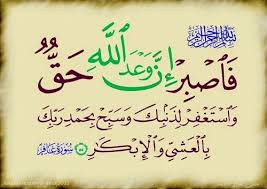 بسم الله الرحمن الرحيم
فَاصْبِرْ إِنَّ وَعْدَ اللَّهِ حَقٌّ
وَاسْتَغْفِرْ لِذَنْبِكَ وَسَبِّحْ بِحَمْدِ رَبِّكَ
بِالْعَشِيِّ وَالْإِبْكَارِ ﴿٥٥﴾ سورة غافر